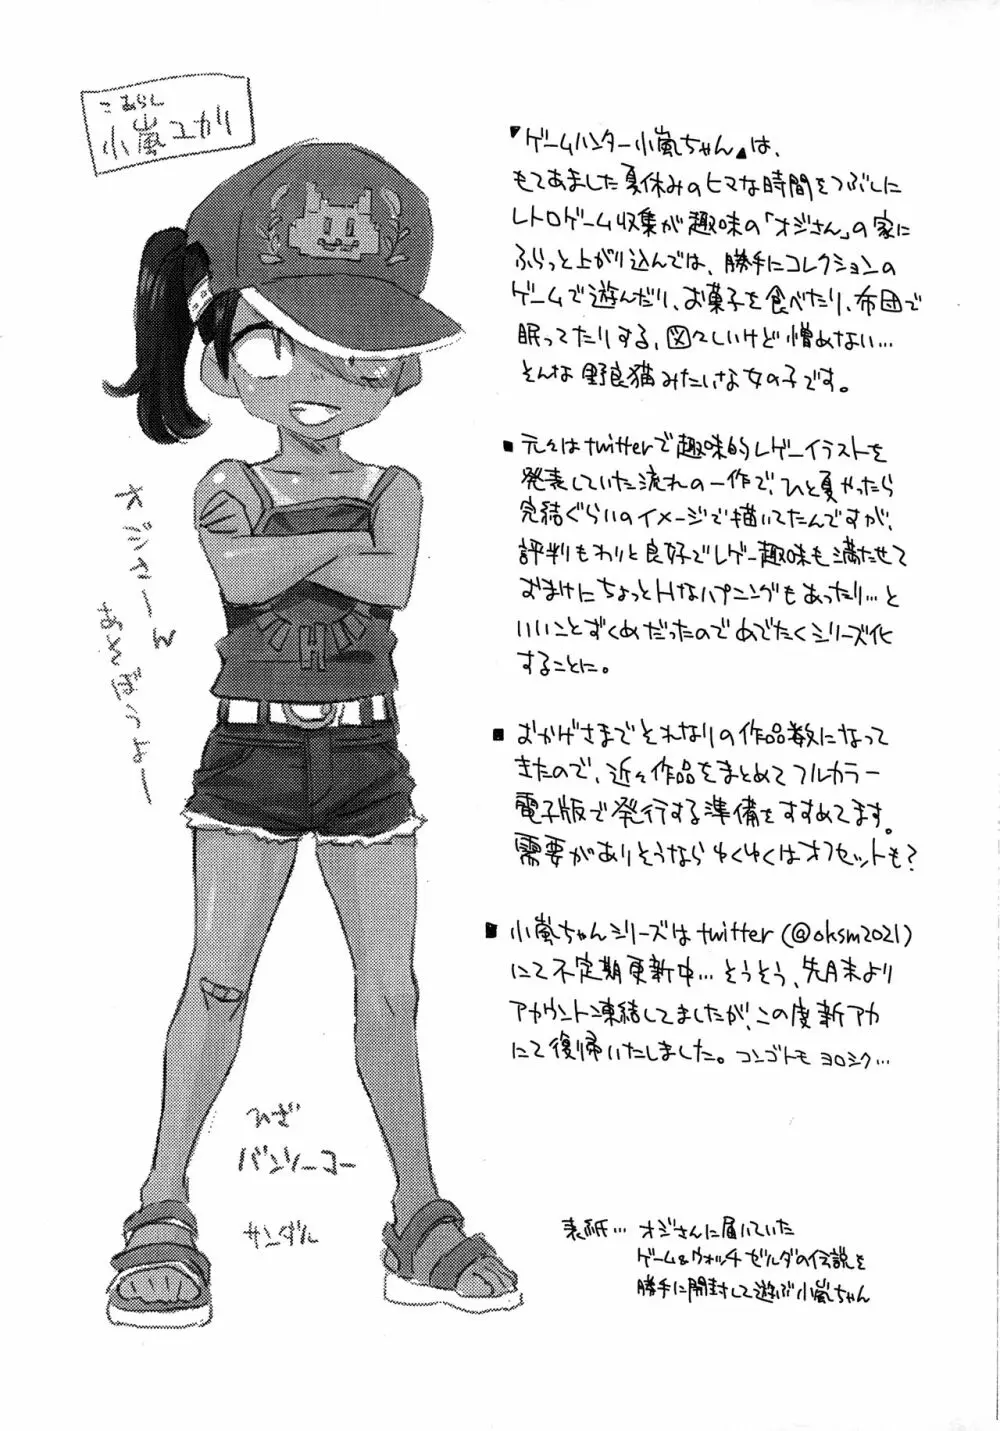 こあらし
小嵐ユカリ
オジさーん
あそぼうよー
ひざ
バンソーコー
サンダル
H
『ゲームハンター小嵐ちゃん』は、
もてあました夏休みのヒマな時間をつぶしに
レトロゲーム収集が趣味の「オジさん」の家に
ふらっと上がり込んでは、勝手にコレクションの
ゲームで遊んだり、お菓子を食べたり、布団で
眠ってたりする、図々しいけど憎めない…
そんな野良猫みたいな女の子です。
■元々はtwitterで趣味的レゲーイラストを
発表していた流れの一作で、ひと夏やったら
完結ぐらいのイメージで描いてたんですが、
評判もわりと良好でレゲー趣味も満たせて
おまけにちょっとHなハプニングもあったり…と
いいことずくめだったのでめでたくシリーズ化
することに。
■おかげさまでそれなりの作品数になって
きたので、近々作品をまとめてフルカラー
電子版で発行する準備をすすめてます。
需要がありそうならゆくゆくはオフセットも?
■小嵐ちゃんシリーズはtwitter(@oksm2021)
にて不定期更新中…そうそう、先月末より
アカウント凍結してましたが、この度新アカ
にて復帰いたしました。コンゴトモヨロシク…
表紙…オジさんに届いていた
ゲーム&ウォッチゼルダの伝説を
勝手に開封して遊ぶ小嵐ちゃん